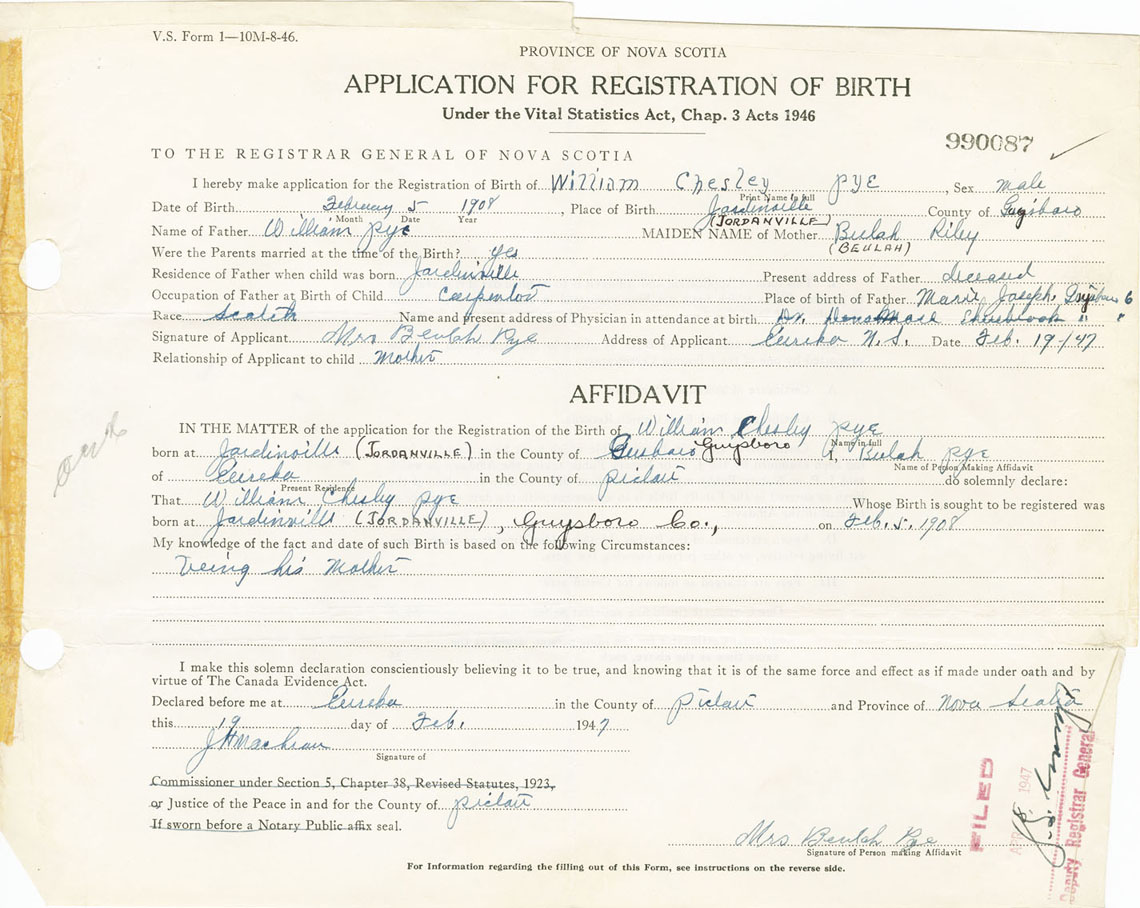 V.S. Form 1—10M-8-46.
PROVINCE OF NOVA SCOTIA
APPLICATION FOR REGISTRATION OF BIRTH
Under the Vital Statistics Act, Chap. 3 Acts 1946
990087
TO THE REGISTRAR GENERAL OF NOVA SCOTIA
I hereby make application for the Registration of Birth of William Chesley PYE, Sex male
Print Name in full
Date of Birth February 5 1908, Place of Birth Jardinville County of Guysboro
Month Date Year (JORDANVILLE)
Name of Father William Pye MAIDEN NAME of Mother Beulah Riley
(BEULAH)
Were the Parents married at the time of the Birth? yes
Residence of Father when child was born Jardinville Present address of Father deceased
Occupation of Father at Birth of Child Carpentor Place of birth of Father Marie Joseph,
Race Scotch Name and present address of Physician in attendance at birth Dr.
Signature of Applicant Mrs Beulah Pye Address of Applicant Eureka N.S. Date Feb. 19-/47
Relationship of Applicant to child Mother
AFFIDAVIT
IN THE MATTER of the application for the Registration of the Birth of William Chesley PYE
Name in full
born at Jardinville (JORDANVILLE) in the County of Guysboro I, Beulah Pye
Name of Person Making Affidavit
of Eureka in the County of Pictou do solemnly declare:
Present Residence
That William Chesley Pye Whose Birth is sought to be registered was
born at Jardinville (JORDANVILLE), Guysboro Co., on Feb. 5. 1908
My knowledge of the fact and date of such Birth is based on the following Circumstances:
being his Mother
I make this solemn declaration conscientiously believing it to be true, and knowing that it is of the same force and effect as if made under oath and by
virtue of The Canada Evidence Act.
Declared before me at Eureka in the County of Pictou and Province of Nova Scotia
this 19 day of Feb. 1947
Signature of
Commissioner under Section 5, Chapter 38, Revised Statutes, 1923,
or Justice of the Peace in and for the County of Pictou
If sworn before a Notary Public affix seal.
Mrs Beulah Pye
Signature of Person making Affidavit
FILED
APR 8 1947
Deputy Registrar General
For Information regarding the filling out of this Form, see instructions on the reverse side.